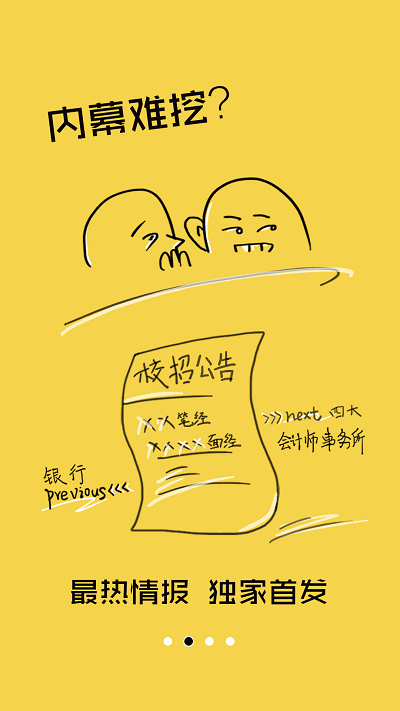 内幕难挖?
校招公告
XXX笔经
XXXX面经
>>>next 四大
会计师事务所
银行
previous<<<
最热情报 独家首发